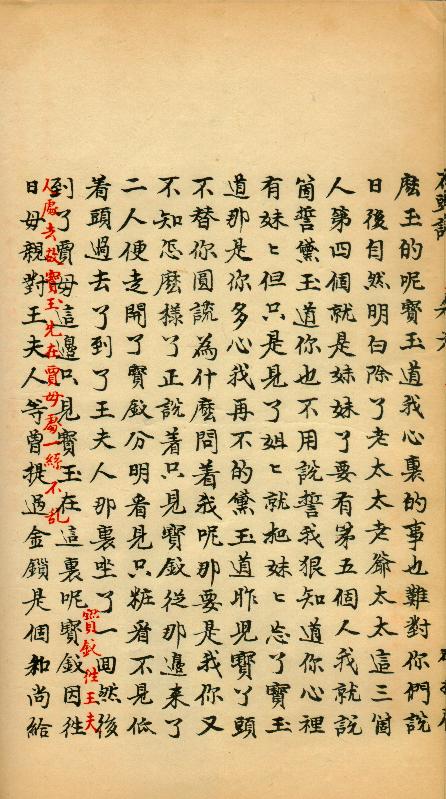 麽玉的呢寶玉道我心裏的事也難對你們說
日後自然明白除了老太太老爺太太這三個
人第四個就是妹妹了要有第五個人我就說
箇誓黛玉道你也不用說誓我狠知道你心裡
有妹〻但只是見了姐〻就把妹〻忘了寶玉
道那是你多心我再不的黛玉道昨兒寶丫頭
不替你圓謊為什麼問着我呢那要是我你又
不知怎麼樣了正說着只見寶釵從那邊來了
二人便走開了寶釵分明看見只粧看不見低
着頭過去了到了王夫人那裏坐了一回然後
到了賈母這邊只見寶玉在這裏呢寶釵因徃
日母親對王夫人等曾提過金鎖是個和尚給
寶釵徃王夫
人處去故寶玉先在賈母處一絲不亂